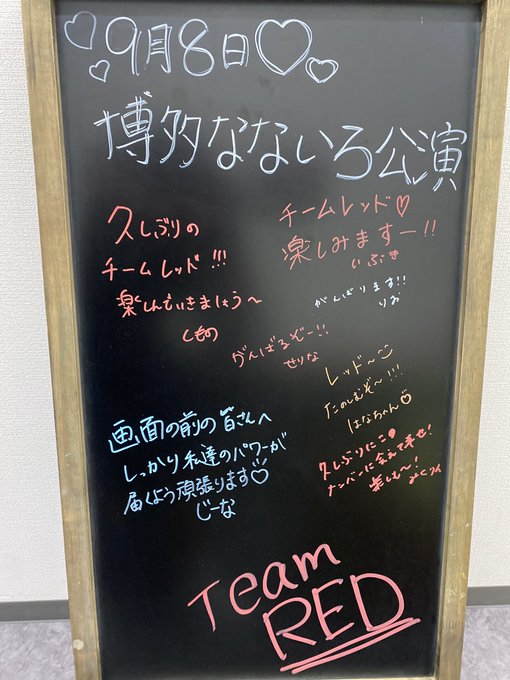 ♡9月8日♡♡
博多なないろ公演
久しぶりの
チームレッド!!!
楽しんでいきましょう〜
しもの
チームレッド♡
楽しみますー!!
いぶき
がんばります!!
りお
がんばるぞー!!
せりな
レッド〜
たのしむぞ〜!!!
はなちゃん♡
画面の前の皆さんへ
しっかり私達のパワーが
届くよう頑張ります♡
じーな
久しぶりに
ナンバンに会えて幸せ!
楽しも〜!
Team
RED